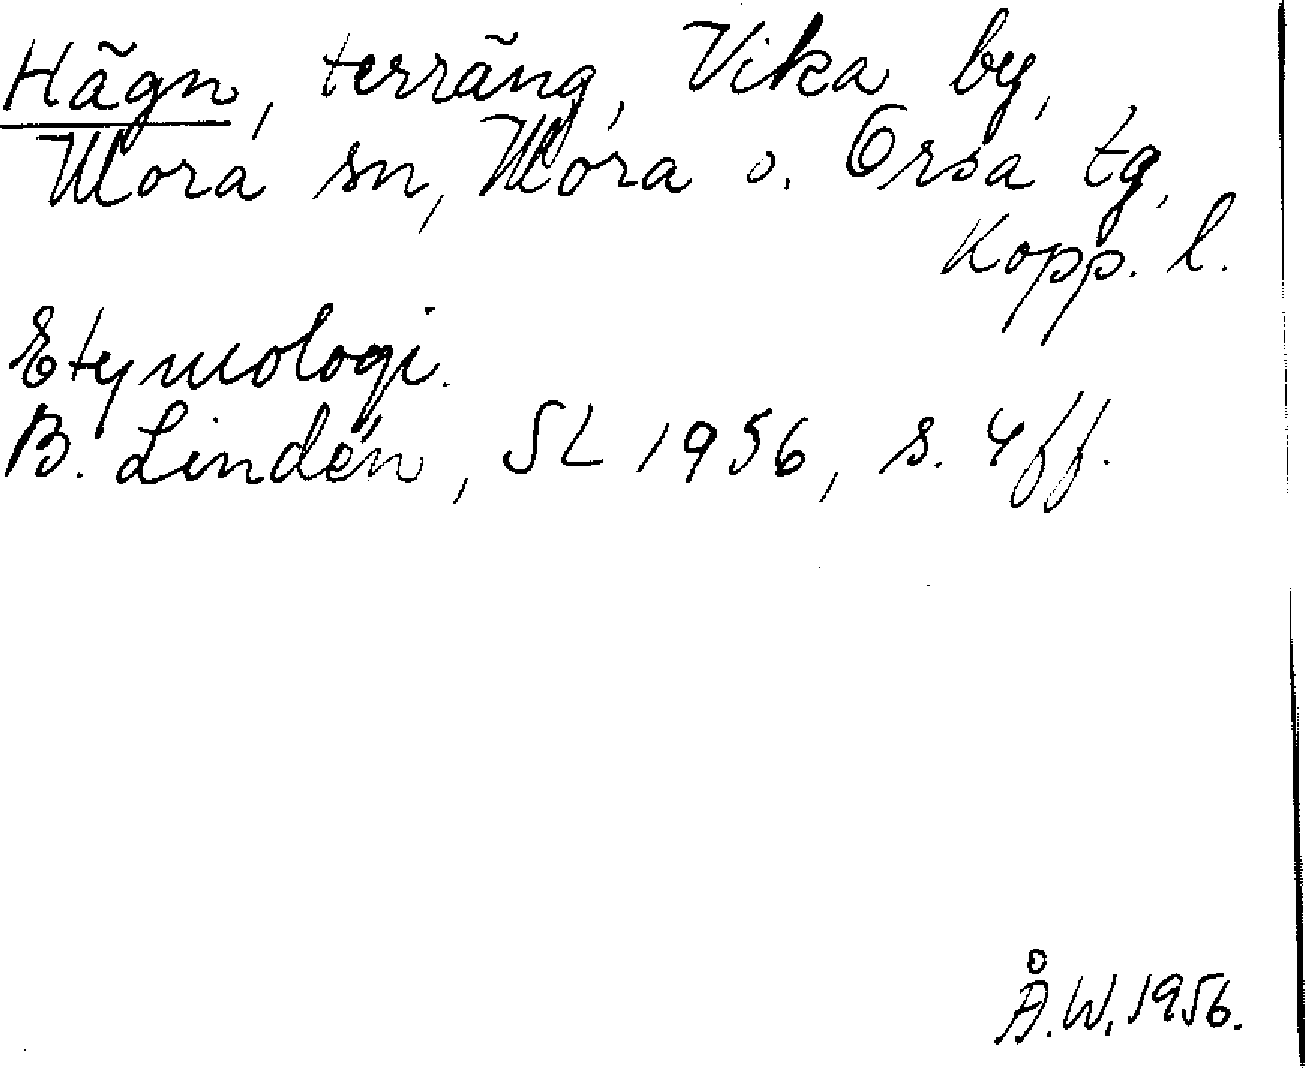 Hägn, terräng, Vika by,
Mora sn, Mora o. Orsa tg,
Kopp. l.
Etymologi.
B. Lindén, SL 1956, s. 4 ff.
Å.W. 1956.